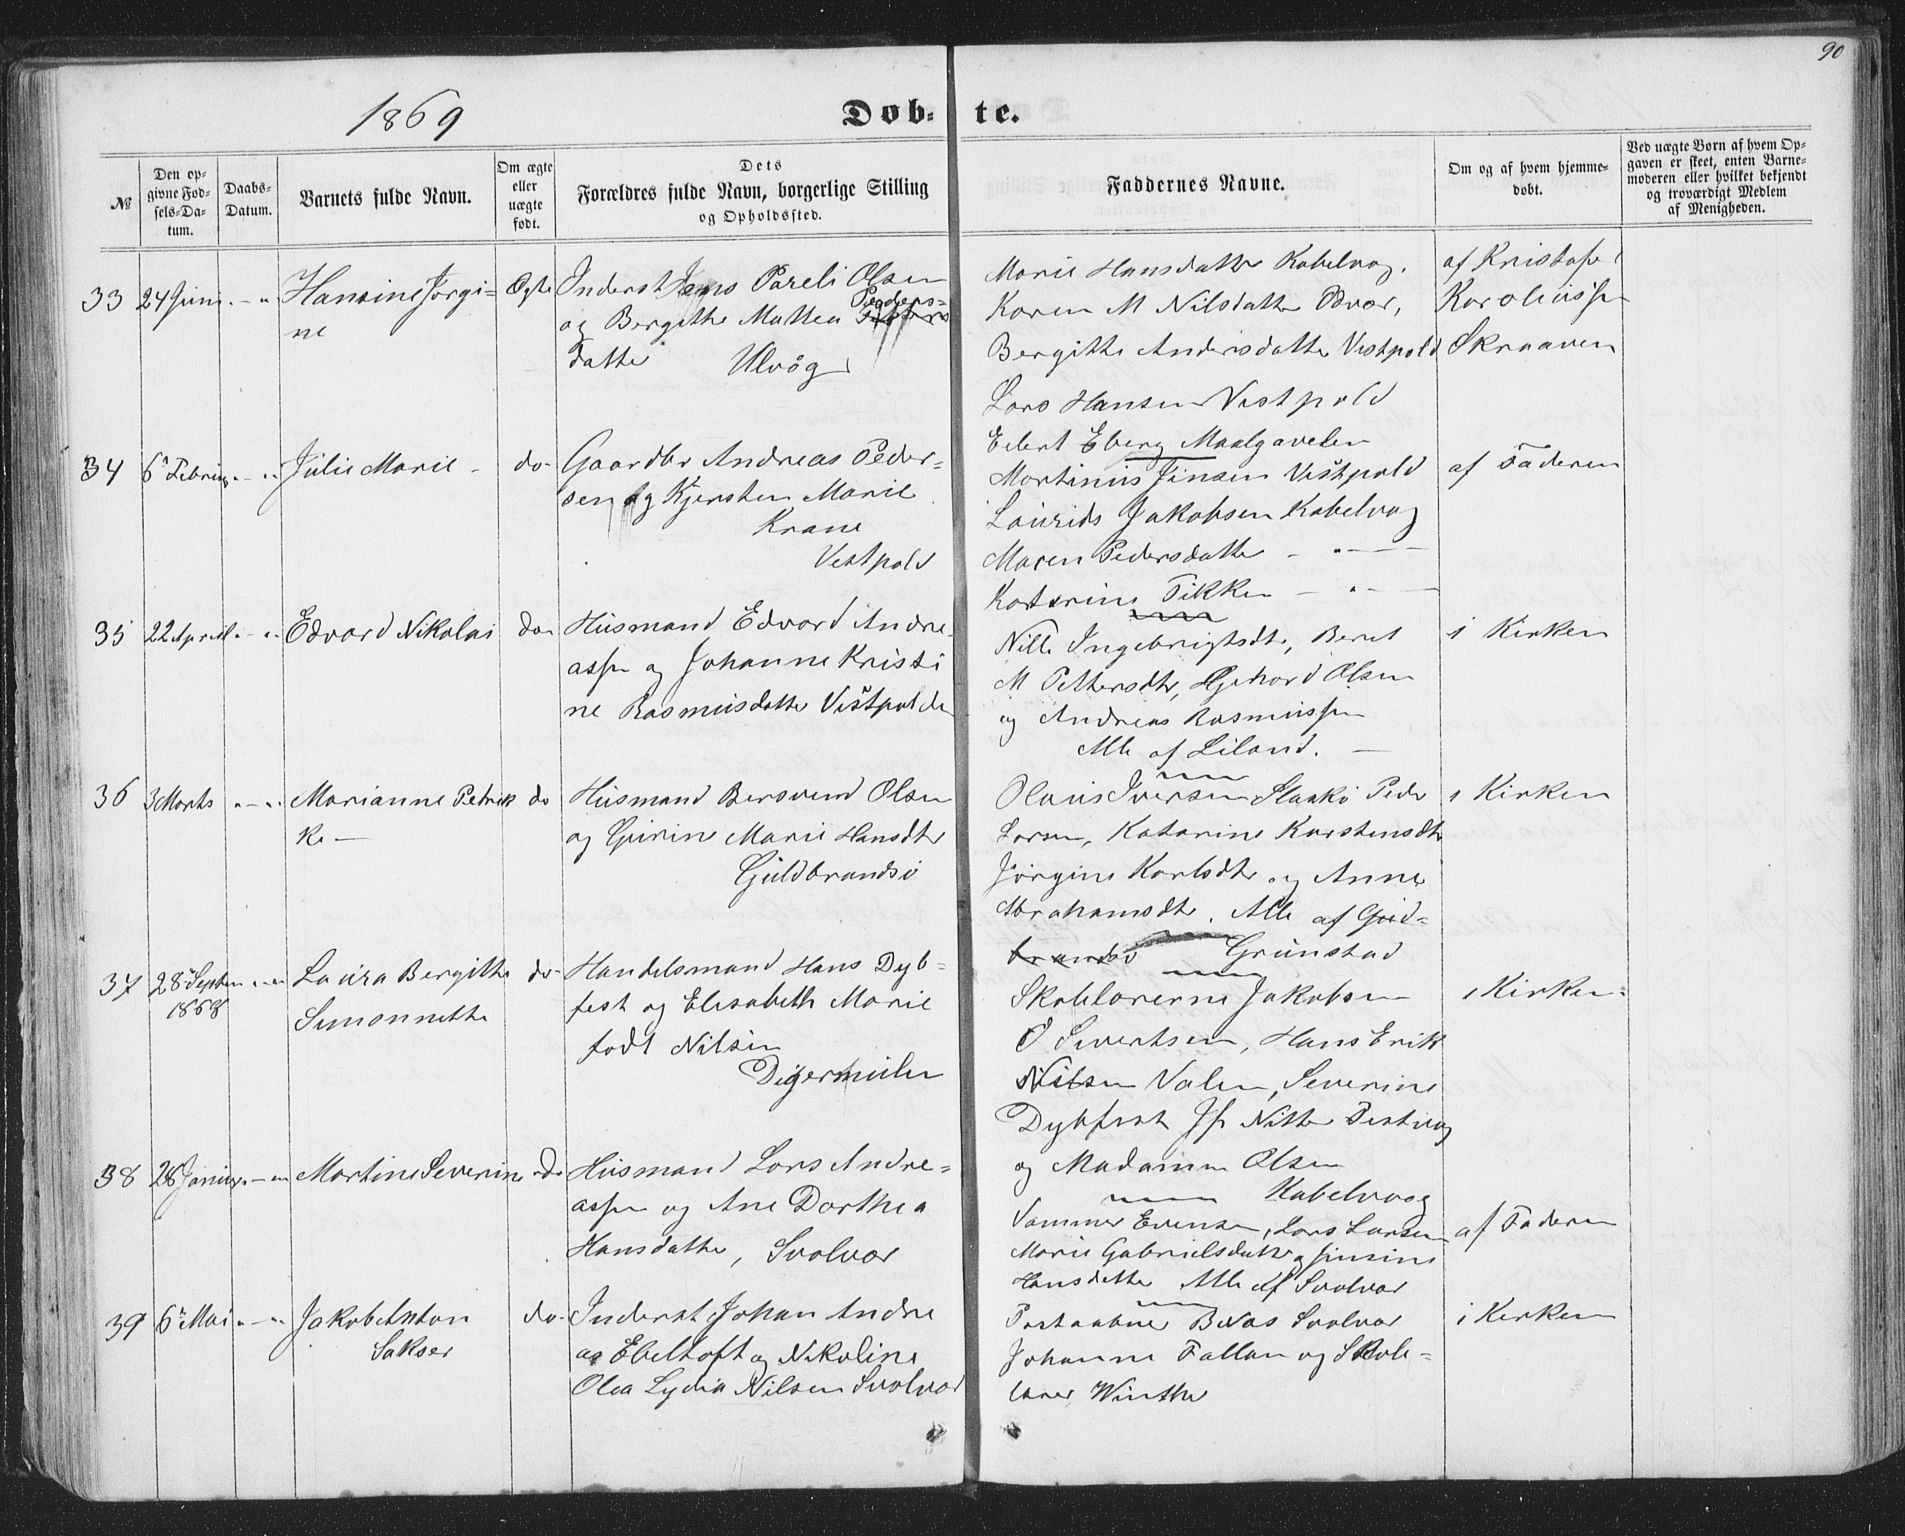 90
1869
Døb- te.
№
Den op-
givne Fød-
sels-Da-
tum.
Daabs-
Datum.
Barnets fulde Navn.
Om ægte
eller
uægte
født.
Dets
Forældres fulde Navn, borgerlige Stilling
og Opholdssted.
Faddernes Navne.
Om og af hvem hjemme-
døbt.
Ved uægte Børn af hvem Op-
gaven er skeet, enten Barne-
moderen eller hvilket bekjendt
og troværdigt Medlem
af Menigheden.
33 24 Juni Hansine Jørgi-
ne
Ægte
Inderst Jens Pareli Olsen
og Bergithe Mathea Peders-
datte Ulvøg
Marie Hansdatter Kabelvog.
Karen M Nilsdatter Ødvær,
Bergitte Andersdatter Vestpold
Lars Hansen Vestpold
Eilert Eberg Maalgavelen
af Kristofe
Karoliussen
Skraaven
34 6 Februar Julie Marie
do
Gaardbr Andreas Peder-
sen og Kjersten Marie
Krane
Vestpold
Martinus Jensen Vestpold
Laurids Jakobsen Kabelvog
Maren Pedersdatter
Katarine Fikken
af Faderen
35 22 April Edvard Nikolai
do
Husmand Edvard Andre-
assen og Johanne Kristi
ne Rasmusdatter Vestpolde
Nille Ingebrigtsdt, Beret
M Pettersdtr, Gjehard Olsen
og Andreas Rasmussen
Alle af Liland.
i Kirken
36 3 Marts Marianne Petrik
ke
do
Husmand Bersvend Olsen
og Guirin Marie Hansdtr
Guldbrandsø
Olaus Iversen Slaakø Peder
Larsen, Katarine Karstensdtr
Jørgine Karlsdtr og Anne
Abrahamsdtr. Alle af Guld-
brandsø Grunstad
i Kirken
37 28 Septem
1868
Laura Bergitha
Simonnette
do
Handelsmand Hans Dyb-
fest og Elisabeth Marie
født Nilsen
Digermulen
Skolelærerne Jakobsen
O Sivertsen, Hans Erik
Nilsen Valen, Severine
Dybfest Jfr Nitter Festvog
og Madamme Olsen
Kabelvaag
i Kirken
38 28 Januar Martine Severin
do
Husmand Lars Andre-
assen og Ane Dorthea
Hansdatter, Svolvær
Sammer Evensen, Lars Larsen
Marie Gabrielsdatter og Jensine
Hansdatter Alle af Svolvær
af Faderen
39 6 Mai Jakob Anton
Sakser
do
Inderst Johan Andre
as Ebeltoft og Nikoline
Olea Lydia Nilsen Svolvær
Postaabner Berås Svolvær
Johanne Fallan og Skole-
lærer Winther
i Kirken